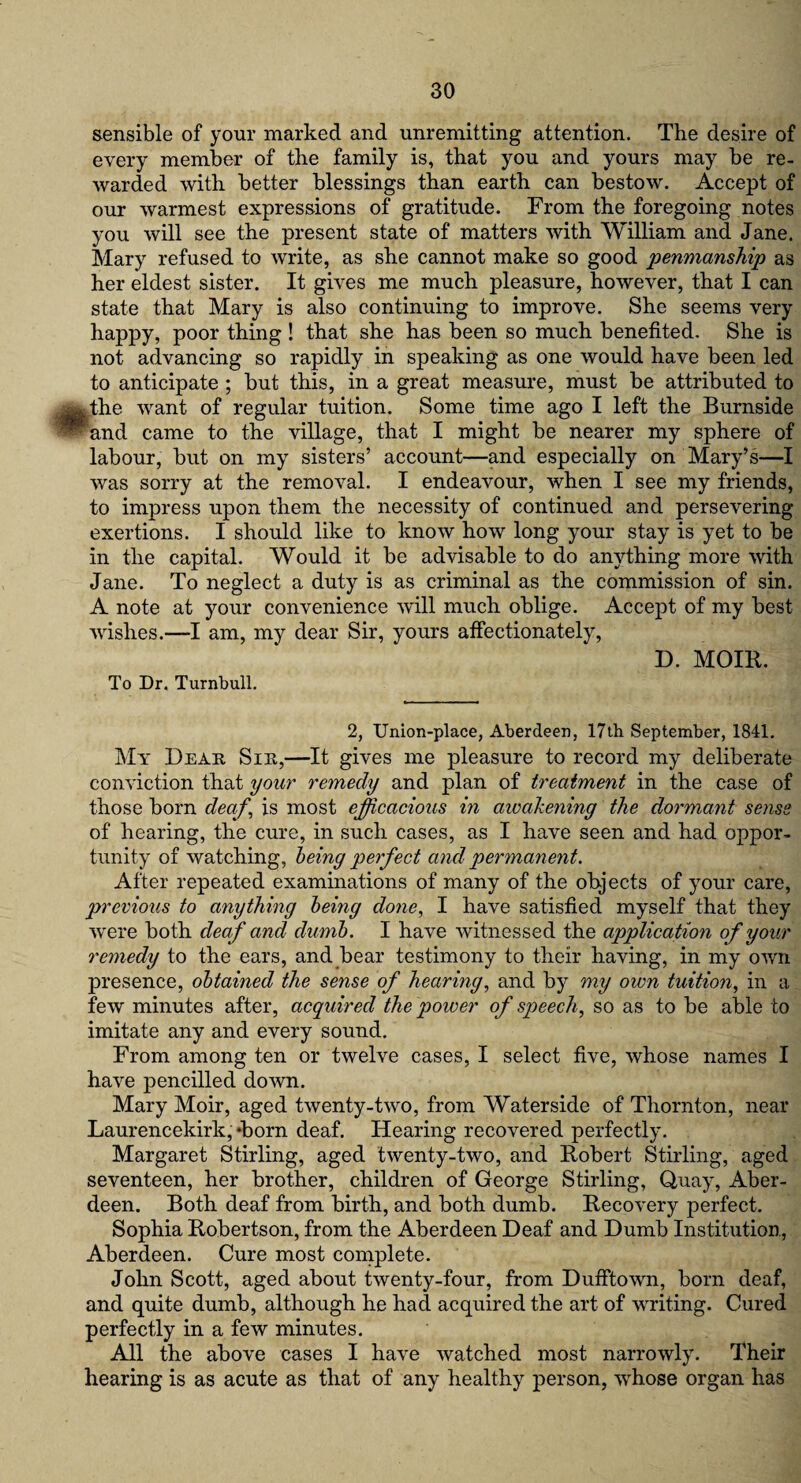 30
sensible of your marked and unremitting attention. The desire of
every member of the family is, that you and yours may be re-
warded with better blessings than earth can bestow. Accept of
our warmest expressions of gratitude. From the foregoing notes
you will see the present state of matters with William and Jane.
Mary refused to write, as she cannot make so good penmanship as
her eldest sister. It gives me much pleasure, however, that I can
state that Mary is also continuing to improve. She seems very
happy, poor thing! that she has been so much benefited. She is
not advancing so rapidly in speaking as one would have been led
to anticipate; but this, in a great measure, must be attributed to
the want of regular tuition. Some time ago I left the Burnside
and came to the village, that I might be nearer my sphere of
labour, but on my sisters' account—and especially on Mary's—I
was sorry at the removal. I endeavour, when I see my friends,
to impress upon them the necessity of continued and persevering
exertions. I should like to know how long your stay is yet to be
in the capital. Would it be advisable to do anything more with
Jane. To neglect a duty is as criminal as the commission of sin.
A note at your convenience will much oblige. Accept of my best
wishes.—I am, my dear Sir, yours affectionately,
D. MOIR.
To Dr. Turnbull.
2, Union-place, Aberdeen, 17th September, 1841.
My Dear Sir,—It gives me pleasure to record my deliberate
conviction that your remedy and plan of treatment in the case of
those born deaf, is most efficacious in awakening the dormant sense
of hearing, the cure, in such cases, as I have seen and had oppor-
tunity of watching, being perfect and permanent.
After repeated examinations of many of the objects of your care,
previous to anything being done, I have satisfied myself that they
were both deaf and dumb. I have witnessed the application of your
remedy to the ears, and bear testimony to their having, in my own
presence, obtained the sense of hearing, and by my own tuition, in a
few minutes after, acquired the power of speech, so as to be able to
imitate any and every sound.
From among ten or twelve cases, I select five, whose names I
have pencilled down.
Mary Moir, aged twenty-two, from Waterside of Thornton, near
Laurencekirk, born deaf. Hearing recovered perfectly.
Margaret Stirling, aged twenty-two, and Robert Stirling, aged
seventeen, her brother, children of George Stirling, Quay, Aber-
deen. Both deaf from birth, and both dumb. Recovery perfect.
Sophia Robertson, from the Aberdeen Deaf and Dumb Institution,
Aberdeen. Cure most complete.
John Scott, aged about twenty-four, from Dufftown, born deaf,
and quite dumb, although he had acquired the art of writing. Cured
perfectly in a few minutes.
All the above cases I have watched most narrowly. Their
hearing is as acute as that of any healthy person, whose organ has